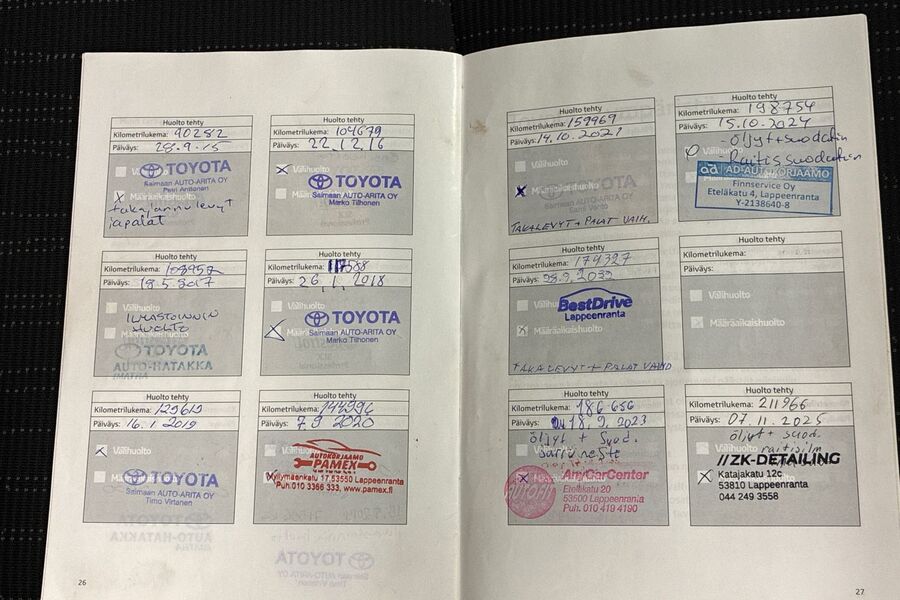 Huolto tehty
Kilometrilukema: 90282
Päiväys: 28.9.15
Välihuolto
TOYOTA
Saimaan AUTO-ARITA OY
Pasi Anttonen
Määräaikaishuolto
takajarrulevyt
japalat
Huolto tehty
Kilometrilukema: 104679
Päiväys: 22.12.16
Välihuolto
TOYOTA
Saimaan AUTO-ARITA OY
Marko Tilhonen
Huolto tehty
Kilometrilukema: 108957
Päiväys: 18.5.2017
Välihuolto
ILMASTOINNIN
HUOLTO
TOYOTA
AUTO-HATAKKA
IMATRA
Huolto tehty
Kilometrilukema: 117588
Päiväys: 26.1.2018
Välihuolto
TOYOTA
Saimaan AUTO-ARITA OY
Marko Tilhonen
Huolto tehty
Kilometrilukema: 129619
Päiväys: 16.1.2019
Välihuolto
TOYOTA
Saimaan AUTO-ARITA OY
Timo Virtanen
Huolto tehty
Kilometrilukema: 144996
Päiväys: 7.9.2020
AUTOKORJAAMO
PAMEX
Kyllymäenkatu 17, 53550 Lappeenranta
Puh. 010 3366 333, www.pamex.fi
26
Huolto tehty
Kilometrilukema: 159969
Päiväys: 14.10.2021
Välihuolto
Määräaikaishuolto
TAKALEVYT + PALAT VAIH.
Huolto tehty
Kilometrilukema: 198754
Päiväys: 15.10.2024
öljyt+suodatin
- Raitissuodatin
AD-AUTOKORJAAMO
Finnservice Oy
Eteläkatu 4, Lappeenranta
Y-2138640-8
Huolto tehty
Kilometrilukema: 179327
Päiväys:
Välihuolto
BestDrive
Lappeenranta
Määräaikaishuolto
TAKALEVYT + PALAT VAIHD
Huolto tehty
Kilometrilukema:
Päiväys:
Välihuolto
Määräaikaishuolto
Huolto tehty
Kilometrilukema: 186 656
Päiväys: 18.9.2023
öljyt + suod.
jarruneste
AnyCarCenter
Eteläkatu 20
53500 Lappeenranta
Puh. 010 419 4190
Huolto tehty
Kilometrilukema: 211966
Päiväys: 07.11.2025
öljyt + suod.
raitisilm
//ZK-DETAILING
Katajakatu 12c
53810 Lappeenranta
044 249 3558
27